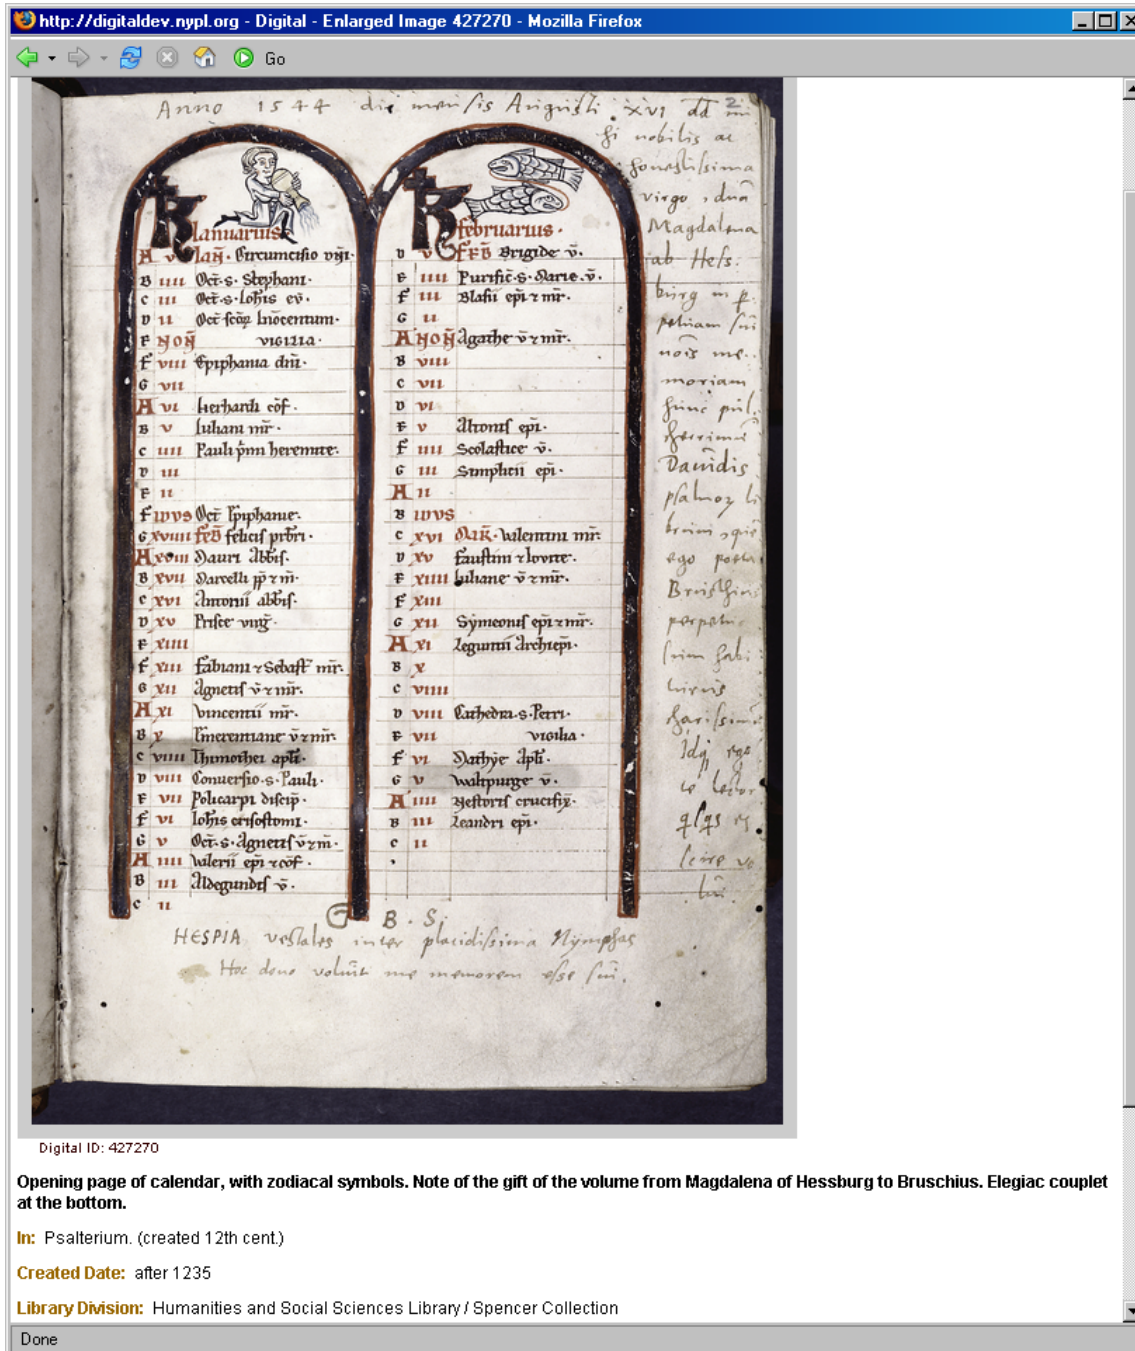 http://digitaldev.nypl.org - Digital - Enlarged Image 427270 - Mozilla Firefox
Go
Anno 1544 die mensis Augusti xvi
nobilis ac
honestissima
virgo
Magdalena
ab Hess:
burg in
moriam
hunc pul
cherrimū
Dauidis
psalmoꝝ li
ego poeta
Bruschius
perpetuo
charissimū
Idqȝ ego
te lector
scire vo
lui.
Ianuarius
A v Ian. Circumcisio
B iiii Oct. s. Stephani.
C iii Oct. s. Iohis ev.
D ii Oct
E NON VIGILIA.
F viii Epiphania dni.
G vii
A vi Herhardi cof.
B v Iuliani mr.
C iiii Pauli heremite.
D iii
E ii
F IDVS Oct Epiphanie.
G xviiii FEB felicis prbri.
A xviii Mauri Abbis.
B xvii Marcelli
C xvi Antonii abbis.
D xv Prisce virg.
E xiiii
F xiii Fabiani ⁊ Sebast mr.
G xii Agnetis v ⁊ mr.
A xi Vincentii mr.
B x Emerentiane v ⁊ mr.
C viiii Thimothei apli.
D viii Conuersio s. Pauli.
E vii Policarpi discip.
F vi Iohis crisostomi.
G v Oct. s. Agnetis v ⁊ m.
A iiii Valerii epi ⁊ cof.
B iii Aldegundis v.
C ii
februarius.
D v FEB Brigide v.
E iiii Purific. s. Marie. v.
F iii Blasii epi ⁊ mr.
G ii
A NON Agathe v ⁊ mr.
B viii
C vii
D vi
E v Altonis epi.
F iiii Scolastice v.
G iii Simplicii epi.
A ii
B IDVS
C xvi MAR. Valentini mr.
D xv Faustini ⁊ Iovite.
E xiiii Iuliane v ⁊ mr.
F xiii
G xii Symeonis epi ⁊ mr.
A xi Archiepi.
B x
C viiii
D viii Cathedra. s. Petri.
E vii Vigilia.
F vi Mathye Apli.
G v Waltpurge v.
A iiii Nestoris
B iii Leandri epi.
C ii
B. S.
HESPIA vestales inter placidissima Nymphas
Hoc dono voluit me memorem esse sui.
Digital ID: 427270
Opening page of calendar, with zodiacal symbols. Note of the gift of the volume from Magdalena of Hessburg to Bruschius. Elegiac couplet
at the bottom.
In: Psalterium. (created 12th cent.)
Created Date: after 1235
Library Division: Humanities and Social Sciences Library / Spencer Collection
Done